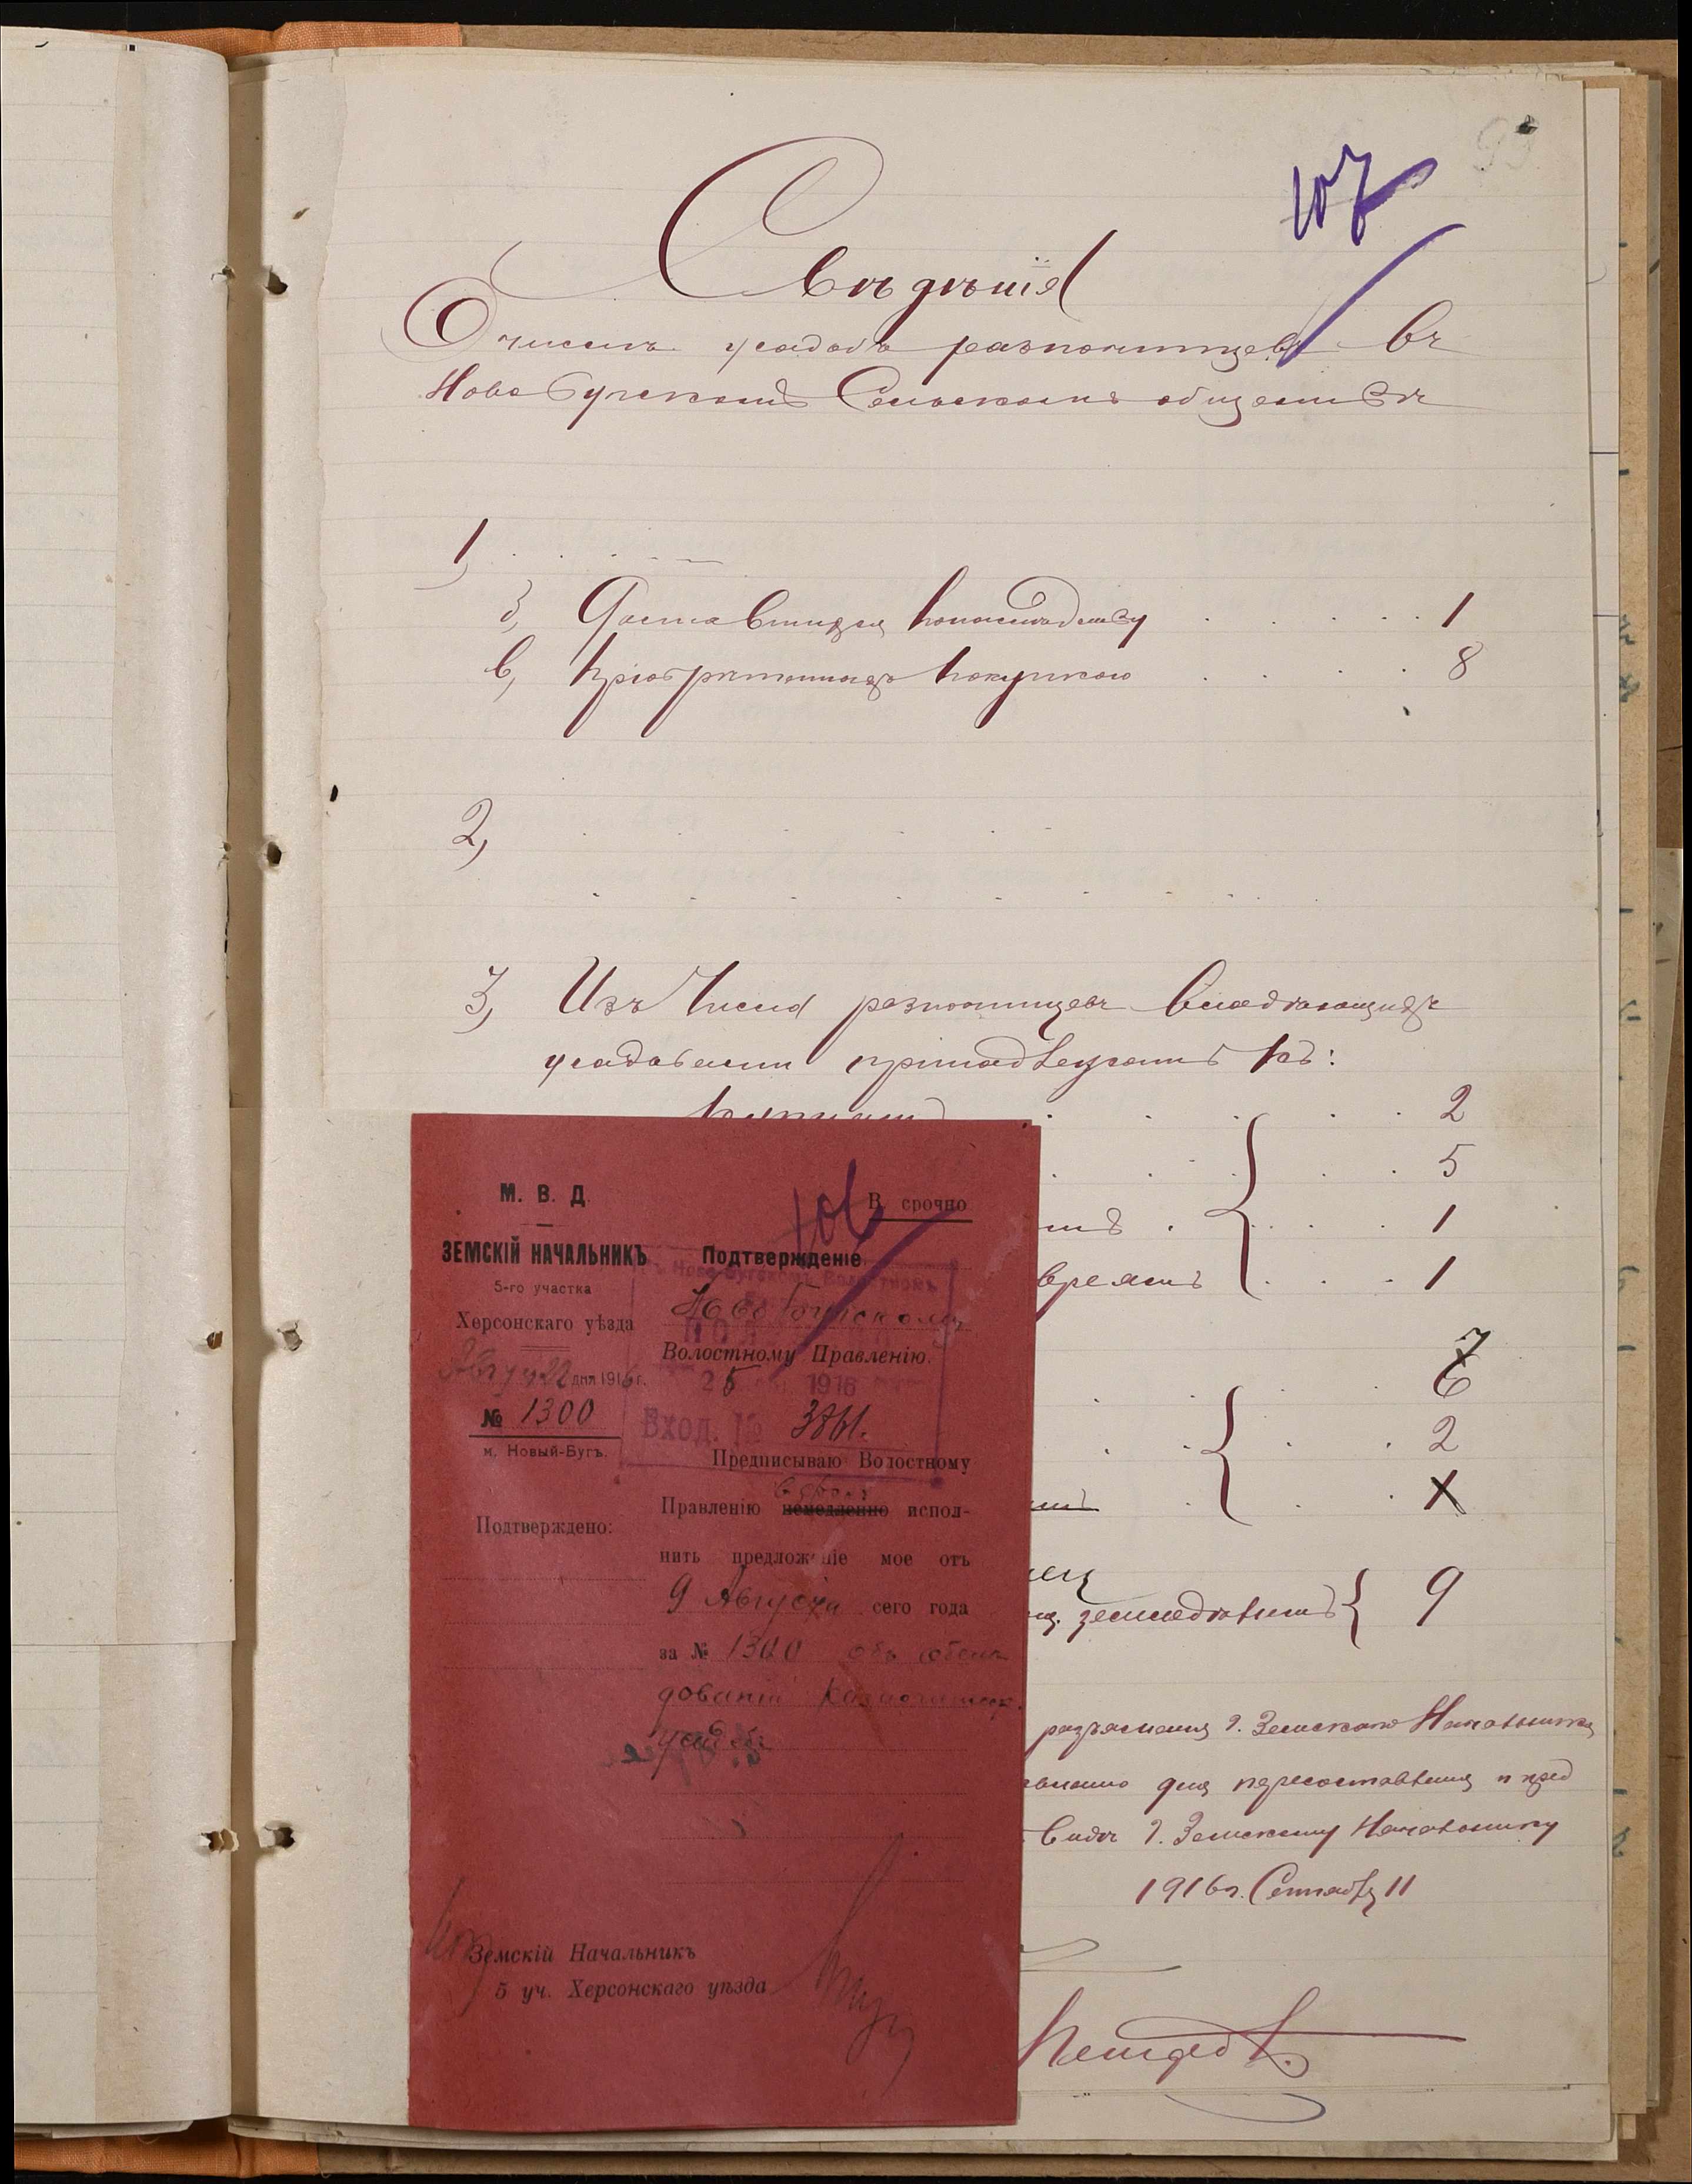 93
107
Свѣдѣнія
О числѣ усадебъ разночинцевъ въ
Новобугскомъ Сельскомъ обществѣ
1,
б, Доставшихся по наслѣдству 1
в, Пріобрѣтенныхъ покупкою 8
2,
3, Изъ числа разночинцевъ владѣющихъ
усадьбами принадлежатъ къ:
2
5
1
1
7
6
2
9
разъясненія Г. Земскаго Начальника
для пересоставленія и пред
видѣ Г. Земскому Начальнику
1916 г. Сентября 11
106
М. В. Д.
В. срочно
ЗЕМСКІЙ НАЧАЛЬНИКЪ
5-го участка
Херсонскаго уѣзда
Август 22 дня 1916 г.
№ 1300
м. Новый-Бугъ.
Подтверждено:
Подтвержденіе
Ново Бугскому
Волостному Правленію.
25 1916
Вход. № 3861.
Предписываю Волостному
Правленію немедленно испол-
нить предложеніе мое отъ
9 Августа сего года
за № 1300 объ обслѣ
дованіи
усадебъ
Земскій Начальникъ
5 уч. Херсонскаго уѣзда